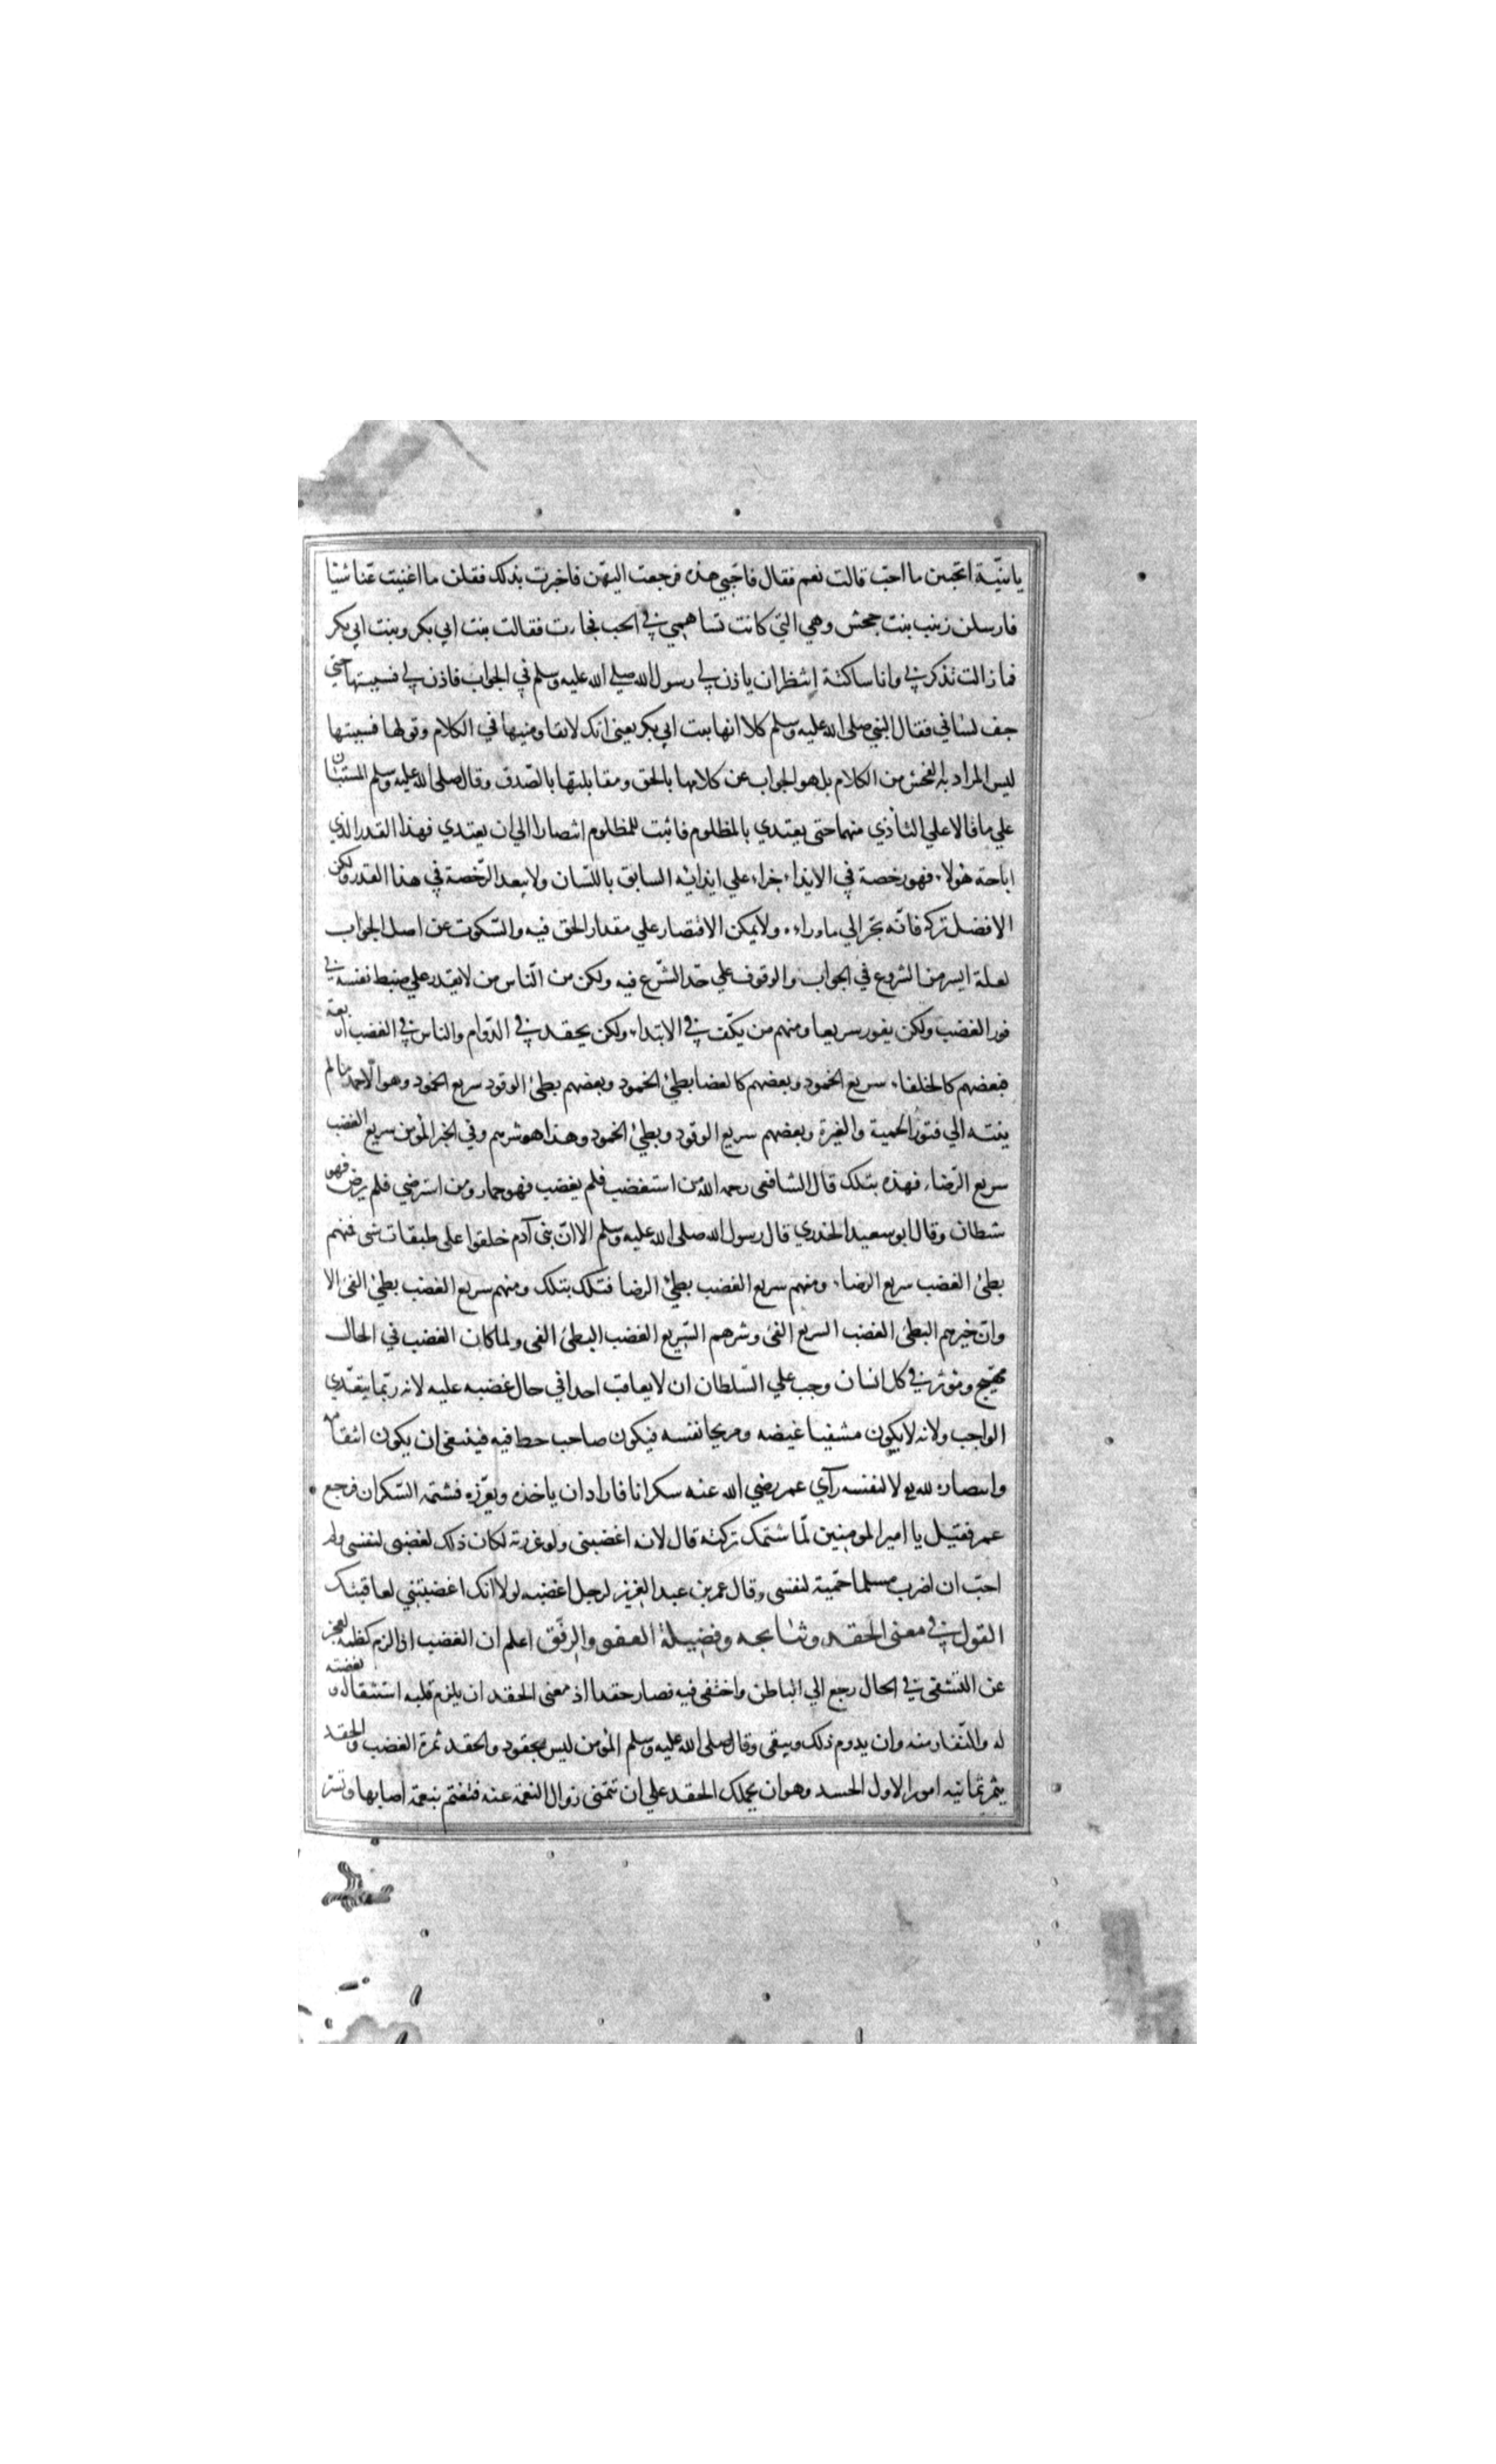 يا بنيّة اتحبين ما احبّ قالت نعم فقال فاحبّي هذه فرجعت اليهن فاخبرت بذلك فقلن ما اغنيت عنا شيئا
فارسلن زينب بنت جحش وهي التي كانت تساهمني في الحب فجاءت فقالت بنت ابي بكر وبنت ابي بكر
فما زالت تذكرني وانا ساكتة انتظر ان ياذن لي رسول الله صلي الله عليه وسلم في الجواب فاذن لي فسببتها حتي
جف لساني فقال النبي صلى الله عليه وسلم كلا انها بنت ابي بكر يعني انك لا تقاومنيها في الكلام وقولها فسببتها
ليس المراد به الفحش من الكلام بل هو الجواب عن كلامها بالحق ومقابلتها بالصّدق وقال صلى الله عليه وسلم المستبّان
علي ما قالا علي البادي منهما حتى يعتدي بالمظلوم فاثبت للمظلوم انتصارا الي ان يعتدي فهذا القدر الذي
اباحة هولاء فهو رخصة في الايذاء جزاء علي ايذائه السابق باللسان ولا يبعد الرّخصة في هذا القدر ولكن
الافضل تركه فانّه يجر الي ما وراءه ولا يمكن الاقتصار علي مقدار الحق فيه والسّكوت عن اصل الجواب
لعلة ايسر من الشروع في الجواب والوقوف علي حدّ الشّرع فيه ولكن من النّاس من لا يقدر علي ضبط نفسه في
فور الغضب ولكن يفور سريعا ومنهم من يكف في الابتداء ولكن يحقد في الدّوام والناس في الغضب اربعة
فبعضهم كالحلفاء سريع الخمود وبعضهم كالغضا بطئ الخمود وبعضهم بطئ الوقود سريع الخمود وهو الاحمد ما لم
ينته الي فتور الحمية والغيرة وبعضهم سريع الوقود وبطئ الخمود وهذا هو شرهم وفي الخبر المؤمن سريع الغضب
سريع الرّضا فهذه بتلك قال الشافعى رحمه الله من استغضب فلم يغضب فهو حمار ومن استرضي فلم يرض فهو
شيطان وقال ابو سعيد الخدري قال رسول الله صلى الله عليه وسلم الا انّ بنى آدم خلقوا على طبقات شتى فمنهم
بطئ الغضب سريع الرضاء ومنهم سريع الغضب بطئ الرضا فتلك بتلك ومنهم سريع الغضب بطئ الفئ الا
وانّ خيرهم البطئ الغضب السريع الفئ وشرهم السّريع الغضب البطئ الفئ ولما كان الغضب في الحال
يهيج ويؤثر في كل انسان وجب علي السّلطان ان لا يعاقب احدا في حال غضبه عليه لانه ربّما يتعدّى
الواجب ولانه لا يكون مشفيا غيضه ومريحا نفسه فيكون صاحب حظ فيه فينبغى ان يكون انتقامه
وانتصاره لله لا لنفسه رآي عمر رضي الله عنه سكرانا فاراد ان ياخذه ويعزّره فشتمه السّكران فرجع
عمر فقيل يا امير المومنين لمّا شتمك تركته قال لانه اغضبنى ولو عزرته لكان ذلك لغضبى لنفسى ولم
احبّ ان اضرب مسلما حميّة لنفسى وقال عمر بن عبد العزيز لرجل اغضبه لولا انك اغضبتني لعاقبتك
القول في معنى الحقد ونتائجه وفضيلة العفو والرفق اعلم ان الغضب اذا لزم كظمه لعجز
عن التشفى في الحال رجع الي الباطن واختفى فيه فصار حقدا اذ معنى الحقد ان يلزم قلبه استثقاله وبغضته
له والنّفار منه وان يدوم ذلك ويبقى وقال صلى الله عليه وسلم المؤمن ليس بحقود والحقد ثمرة الغضب والحقد
يثمر ثمانيه امور الاول الحسد وهو ان يحملك الحقد علي ان تتمنى زوال النعمة عنه فتغتم بنعمة اصابها وتسر